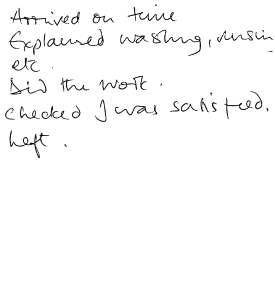 Arrived on time
Explained washing,
etc.
Did the work.
checked I was satisfied.
Left.